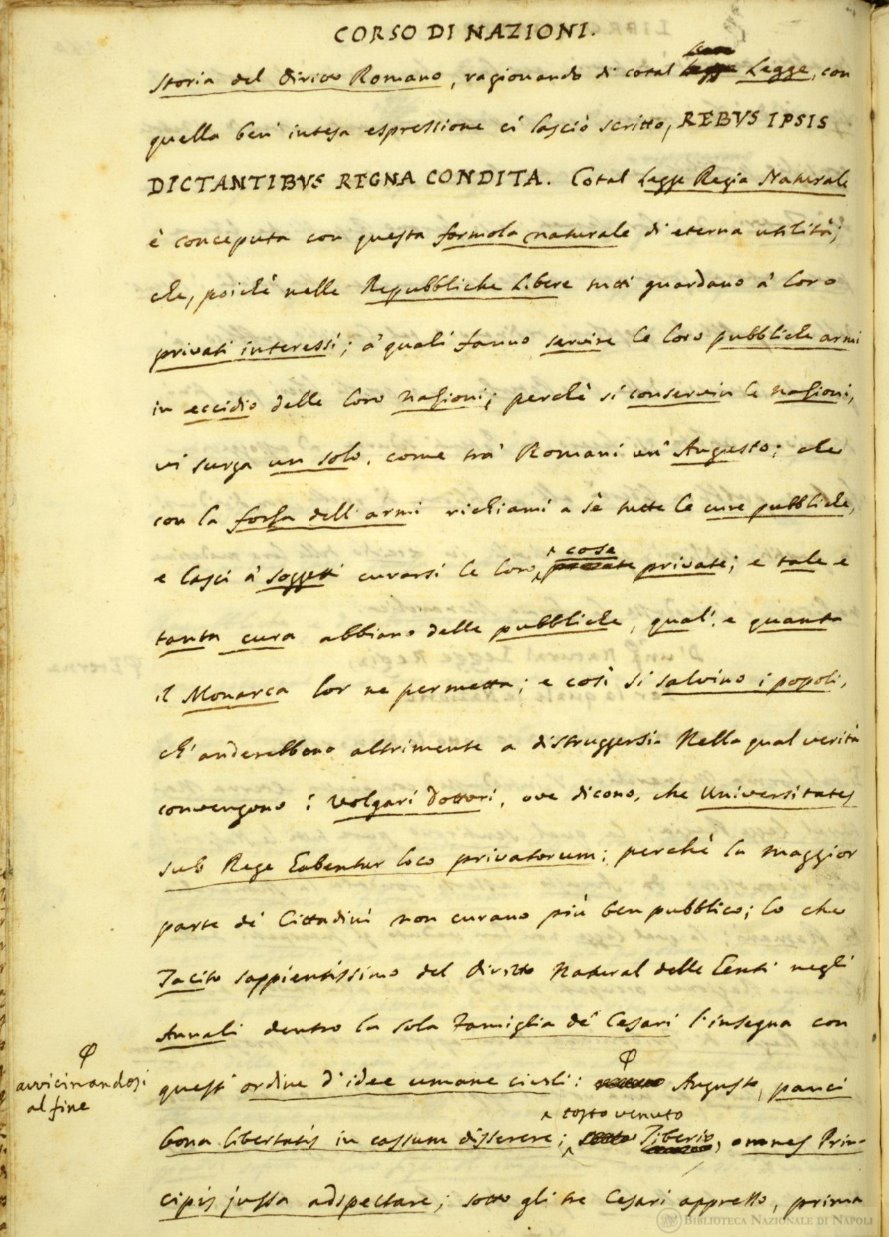 CORSO DI NAZIONI.
Storia del Diritto Romano, ragionando di cotal Legge, con
quella ben intesa espressione ci lasciò scritto, REBVS IPSIS
DICTANTIBVS REGNA CONDITA. Cotal Legge Regia Naturale
è conceputa con questa formola naturale di eterna utilità;
che, poichè nelle Repubbliche Libere tutti guardano a' loro
privati interessi; a' quali fanno servire le loro pubbliche armi
in eccidio delle loro nazioni; perchè si conservin le nazioni,
vi surga un solo, come tra' Romani un' Augusto; che
con la forza dell' armi richiami a sè tutte le cure pubbliche,
e lasci a' soggetti curarsi le loro cose private; e tale e
tanta cura abbiano delle pubbliche, qual', e quanta
il Monarca lor ne permetta; e così si salvino i popoli,
ch' anderebbono altrimente a distruggersi. Nella qual verità
convengono i volgari Dottori, ove dicono, che Universitates
sub Rege habentur loco privatorum; perchè la maggior
parte de' Cittadini non curano più ben pubblico; lo che
Tacito sappientissimo del diritto Natural delle Genti negli
Annali dentro la sola Famiglia de' Cesari l' insegna con
quest' ordine d' idee umane civili: φ Augusto, pauci
φ
avvicinandosi
al fine
bona libertatis in cassum disserere; tosto venuto Tiberio, omnes Prin-
cipis jussa adspectare; sotto gli tre Cesari appresso, prima
BIBLIOTECA NAZIONALE DI NAPOLI